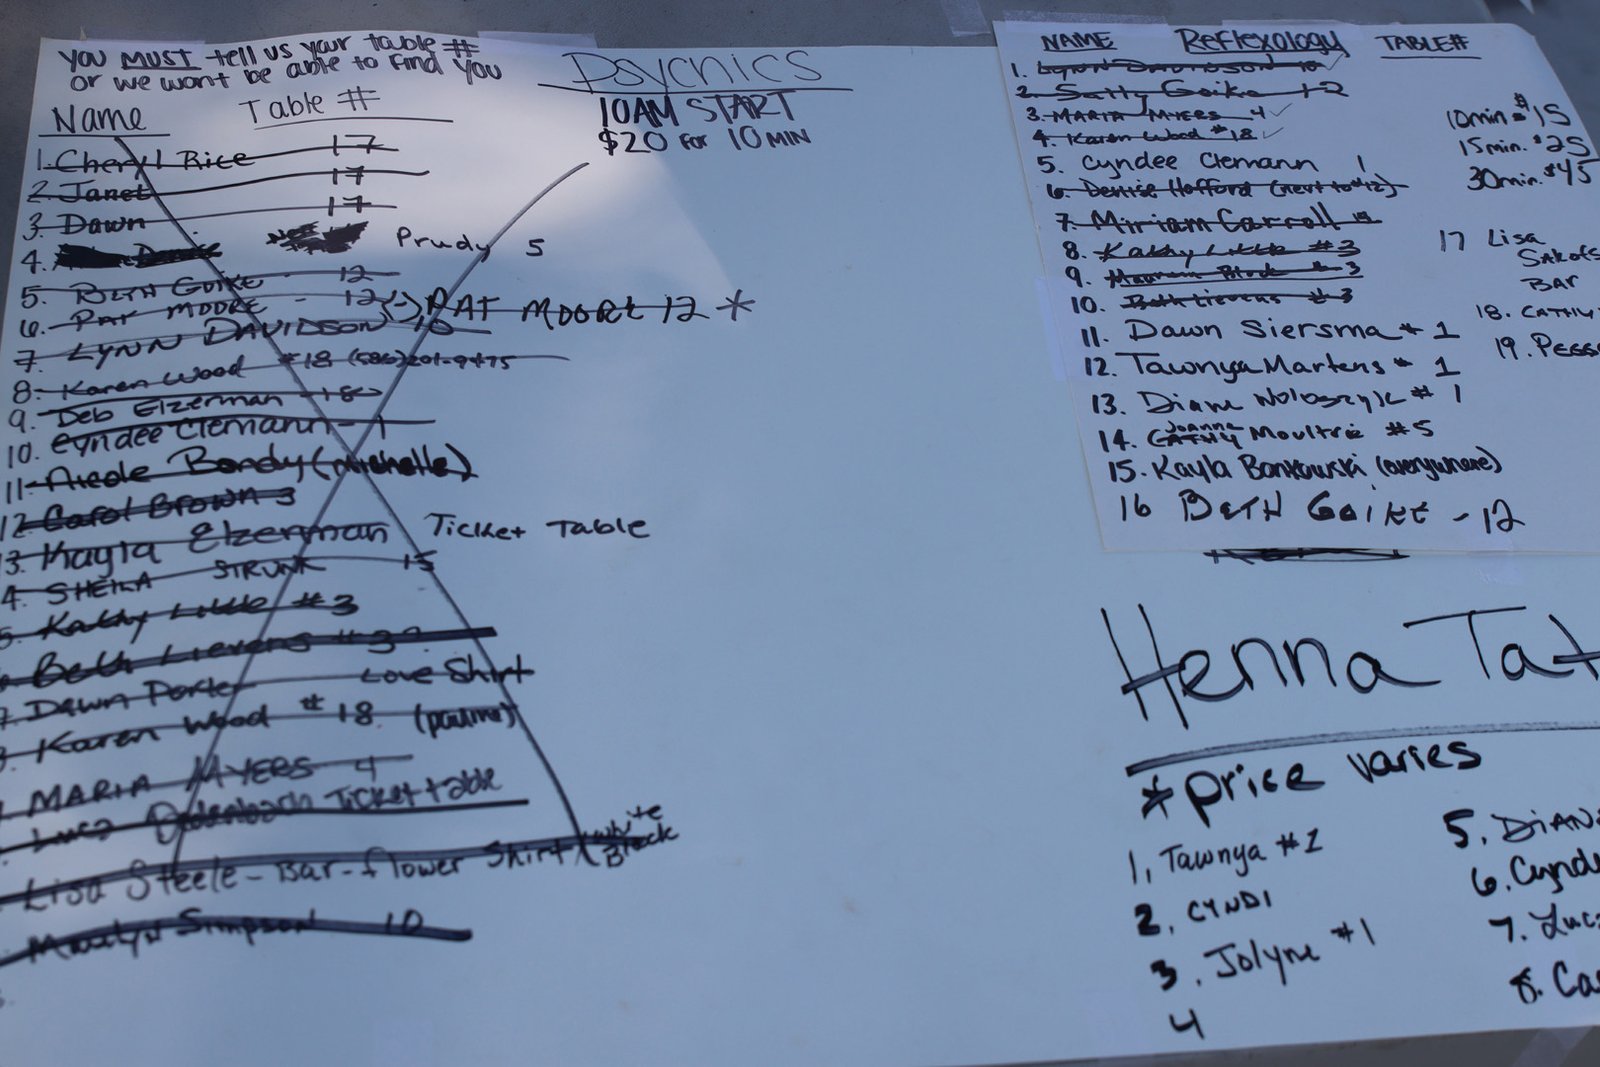 YOU MUST tell us your table #
or we wont be able to find you
Psychics
10AM START
$20 for 10 MIN
Name Table #
1. Cheryl Rice 17
2. Janet 17
3. Dawn 17
4. Prudy 5
5. BETH GOIKE - 12
6. PAT MOORE - 12 PAT MOORE 12 *
7. LYNN DAVIDSON 10
8. Karen Wood #18 (586)201-9475
9. Deb Elzerman - 18
10. Cyndee Clemann - 1
11. Nicole Bondy (michelle)
12. Carol Brown 3
13. Kayla Elzerman Ticket Table
4. SHEILA STRUNK 15
5. Kathy Little #3
Beth Lievens #3
7. Dawn Porter Love Shirt
Karen Wood #18
MARIA MYERS 4
Ticket table
Lisa Steele - Bar - flower Shirt (white Black
Marilyn Simpson 10
NAME Reflexology TABLE#
1. LYNN DAVIDSON 10
2. Goike 12
3. MARIA MYERS 4
4. Karen Wood #18
5. Cyndee Clemann 1
6. Denise Hofford (next to #12)
7. Miriam Carroll
8. Kathy Little #3
9. Maureen Block #3
10. Beth Lievens #3
11. Dawn Siersma # 1
12. Tawnya Martens # 1
13. Diane # 1
14. JOANNE CATHY Moultrie #5
15. Kayla Bankowski (everywhere)
16 BETH GOIKE - 12
10min $15
15min. $25
30min. $45
17 Lisa
BAR
18. CATHY
19.
Henna Tat
*price varies
1, Tawnya #1
2. CYNDI
3. Jolyne #1
4
5. DIAN
6. Cynd
7. Luc
8. Ca